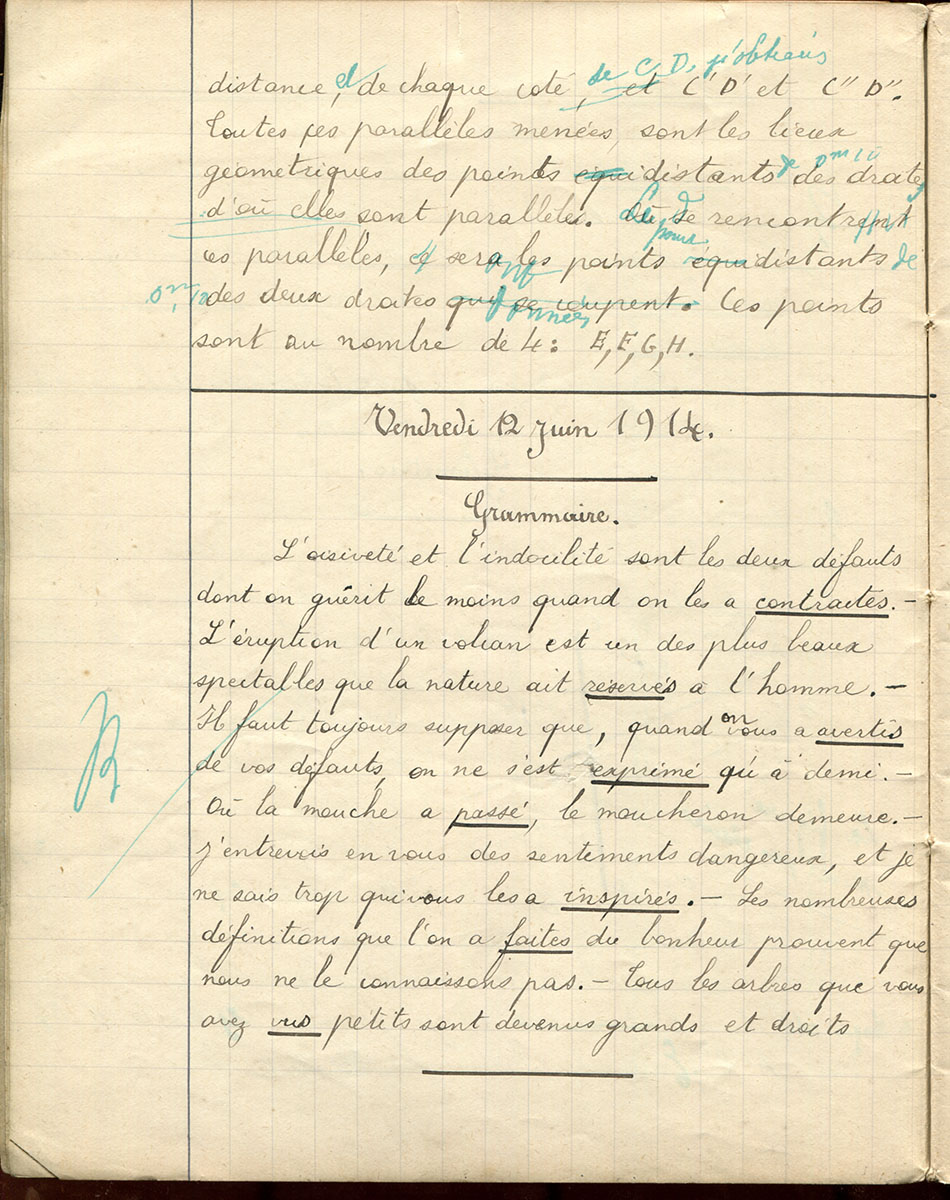 distance, et de chaque coté, de C D. j'obtiens et C' D' et C" D".
Toutes ces parallèles menées, sont les lieux
géometriques des points équidistants de 0m12 des droites
d'où elles sont parallèles. Où se rencontrent
ces parallèles, ce sera les points équidistants de
0m,12 des deux droites qui se coupent. données Ces points
sont au nombre de 4: E, F, G, H.
Vendredi 12 juin 1914.
Grammaire.
L'oisiveté et l'indocilité sont les deux défauts
dont on guérit le moins quand on les a contractés. -
L'éruption d'un volcan est un des plus beaux
spectables que la nature ait réservés à l'homme. -
Il faut toujours supposer que, quand on vous a avertis
de vos défauts, on ne s'est exprimé qu'à demi. -
B
Où la mouche a passé, le moucheron demeure. -
J'entrevois en vous des sentiments dangereux, et je
ne sais trop qui vous les a inspirés. - Les nombreuses
définitions que l'on a faites du bonheur prouvent que
nous ne le connaissons pas. - Tous les arbres que vous
avez vus petits sont devenus grands et droits